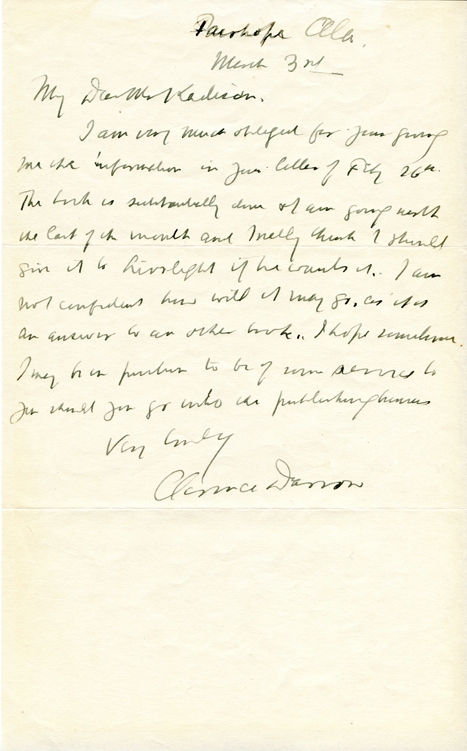 Fairhope Ala.
March 3rd
My Dear Mr Kadison.
I am very much obliged for your giving
me the information in your letter of Feby 26th.
The book is substantially done & I am going north
the last of the month and I really think I should
give it to Liveright if he wants it. I am
not confident how well it may go, as it is
an answer to an other book. I hope sometime
I may be in position to be of some service to
you should you go into the publishing business
Very truly
Clarence Darrow